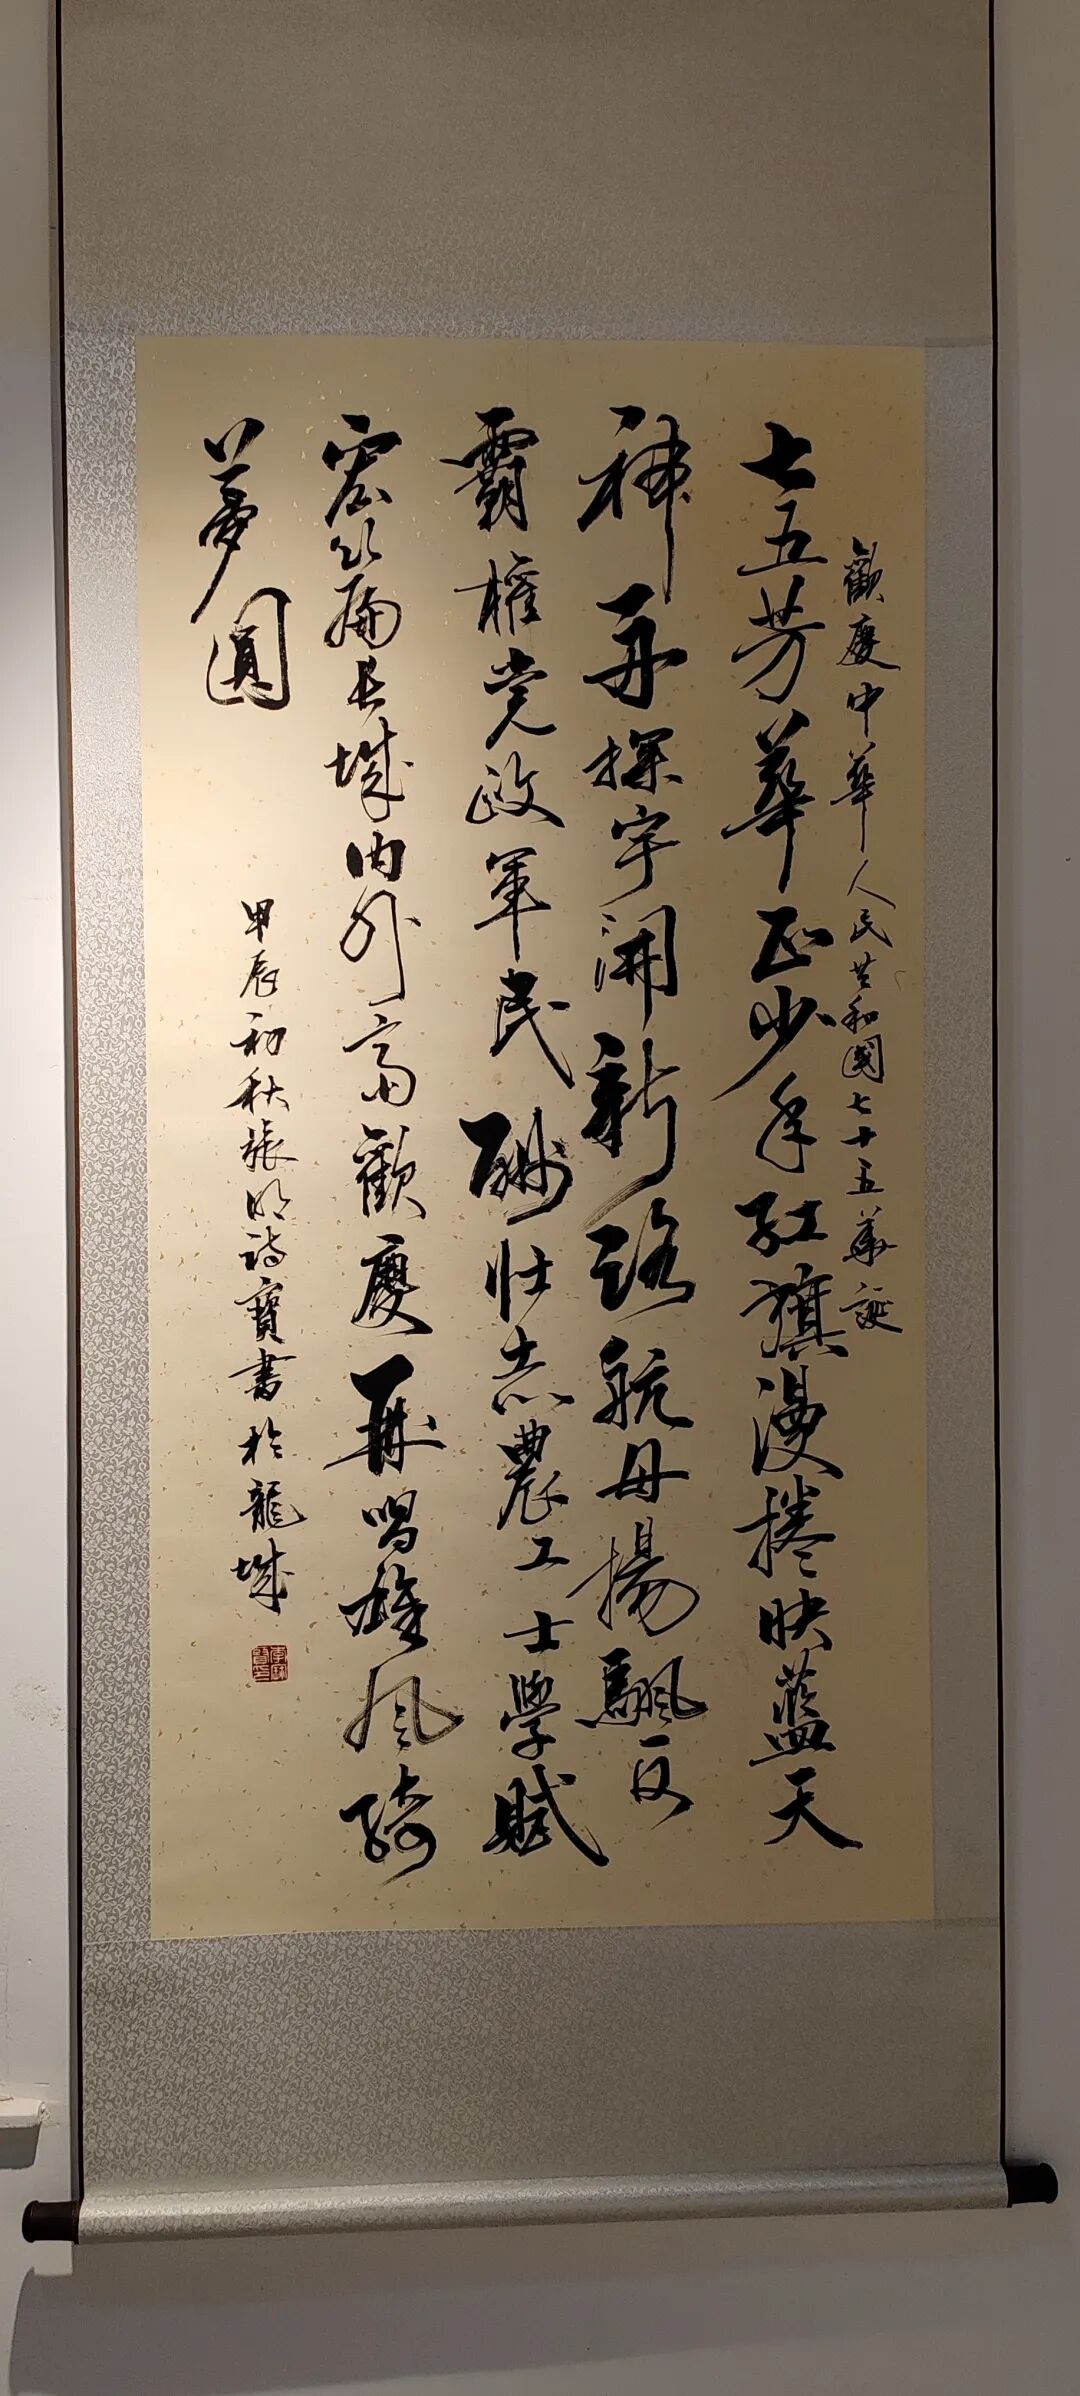 歡慶中華人民共和國七十五華誕
七五芳華正少年紅旗漫捲映藍天
神舟探宇開新路航母揚颿反
霸權党政軍民酬壯志農工士學賦
宏篇長城內外齊歡慶再唱雄風綺
夢圓
甲辰初秋張明詩寶書於龍城